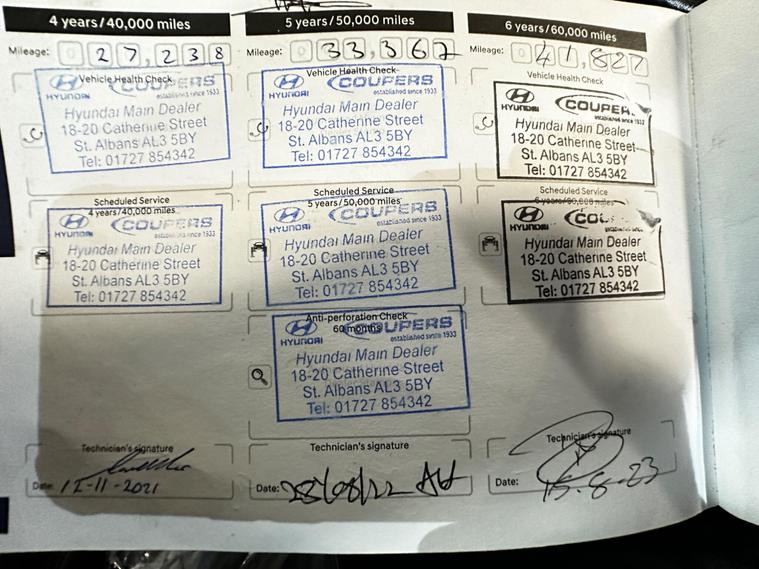 4 years/40,000 miles
Mileage: 0 27,238
Vehicle Health Check
HYUNDAI COUPERS
established since 1933
Hyundai Main Dealer
18-20 Catherine Street
St. Albans AL3 5BY
Tel: 01727 854342
Scheduled Service
4 years/40,000 miles
HYUNDAI COUPERS
established since 1933
Hyundai Main Dealer
18-20 Catherine Street
St. Albans AL3 5BY
Tel: 01727 854342
Technician's signature
Date: 12-11-2021
5 years/50,000 miles
Mileage: 0 33,367
Vehicle Health Check
HYUNDAI COUPERS
established since 1933
Hyundai Main Dealer
18-20 Catherine Street
St. Albans AL3 5BY
Tel: 01727 854342
Scheduled Service
5 years/50,000 miles
HYUNDAI COUPERS
established since 1933
Hyundai Main Dealer
18-20 Catherine Street
St. Albans AL3 5BY
Tel: 01727 854342
Anti-perforation Check
60 months
HYUNDAI COUPERS
established since 1933
Hyundai Main Dealer
18-20 Catherine Street
St. Albans AL3 5BY
Tel: 01727 854342
Technician's signature
Date: 25/08/22
6 years/60,000 miles
Mileage: 0 41,827
Vehicle Health Check
HYUNDAI COUPER
established since 1933
Hyundai Main Dealer
18-20 Catherine Street
St. Albans AL3 5BY
Tel: 01727 854342
Scheduled Service
6 years/60,000 miles
HYUNDAI COU
Hyundai Main Dealer
18-20 Catherine Street
St. Albans AL3 5BY
Tel: 01727 854342
Technician's signature
Date: 15-8-23